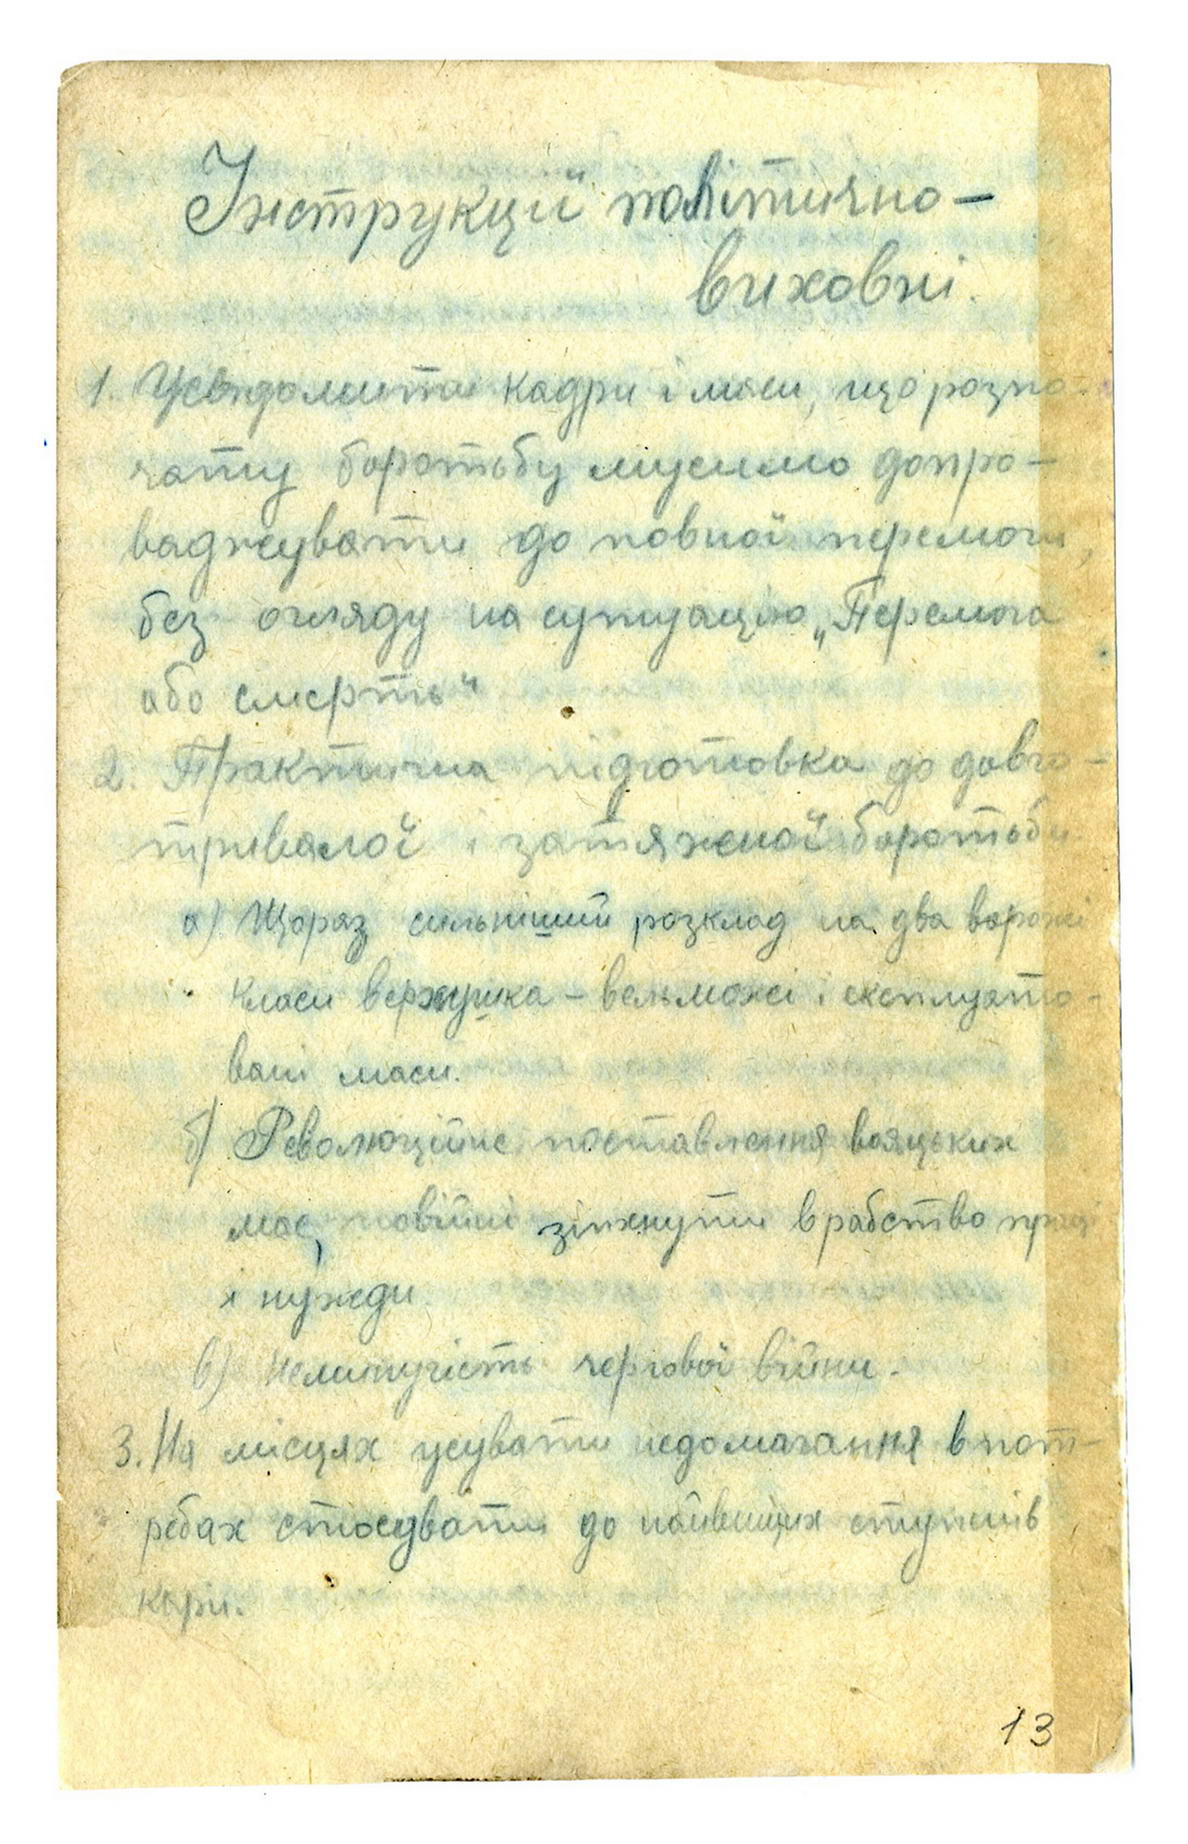 Інструкції політично-
виховні.
1. Усвідомити кадри і маси, що розпо-
чату боротьбу мусимо допро-
ваджувати до повної перемоги,
без огляду на ситуацію „Перемога
або смерть“
2. Практична підготовка до довго-
тривалої і затяжної боротьби
а) Щораз сильніший розклад на два ворожі
класи верхушка - вельможі і експлуато-
вані маси.
б) Революційне поставлення вояцьких
мас, по війні зіпхнути в рабство праці
і нужди
в) Неминучість чергової війни.
3. На місцях усувати недомагання в пот-
ребах стосувати до найвищих ступнів
кари.
13